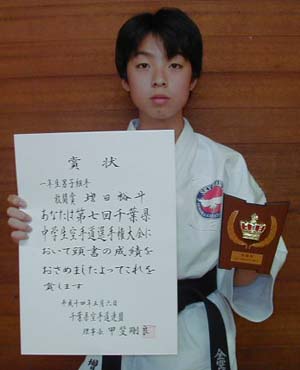 賞状
一年生男子組手
敢闘賞 増田裕斗
あなたは第七回千葉県
中学生空手道選手権大会に
おいて頭書の成績を
おさめましたよってこれを
賞します
平成十四年五月六日
千葉県空手道連盟
理事長 甲斐剛良